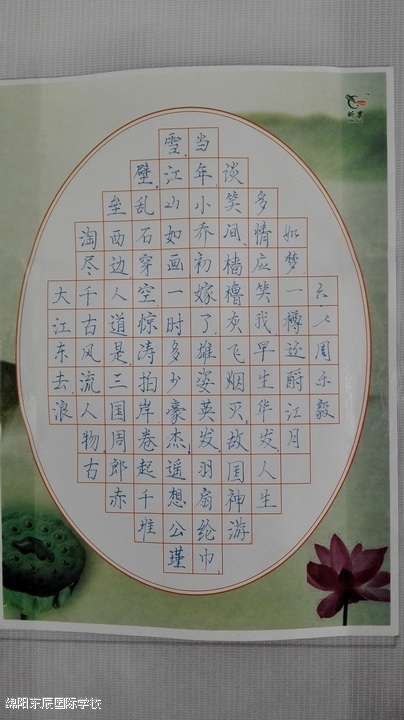 大江东去浪
淘尽千古风流人物古
垒西边人道是三国周郎赤
壁乱石穿空惊涛拍岸卷起千堆
雪江山如画一时多少豪杰遥想公瑾
当年小乔初嫁了雄姿英发羽扇纶巾
谈笑间樯橹灰飞烟灭故国神游
多情应笑我早生华发人生
如梦一樽还酹江月
人周乐毅
绵阳东辰国际学校